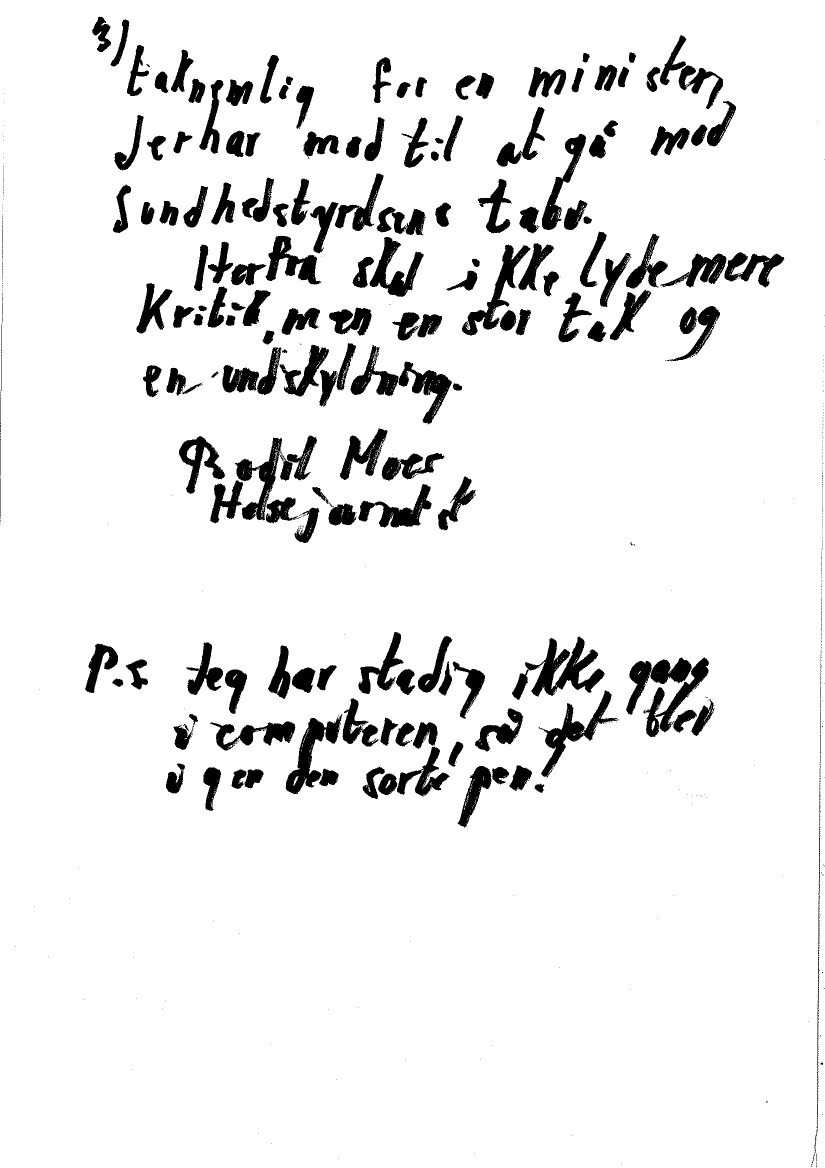 3)
taknemlig for en minister,
Jer har mod til at gå mod
Sundhedstyrdsens tabu.
Herfra skal ikke lyde mere
Kritik, men en stor tak og
en undskyldning.
Bodil Moes
P.s Jeg har stadig ikke gang
i computeren, så det blev
igen den sorte pen!